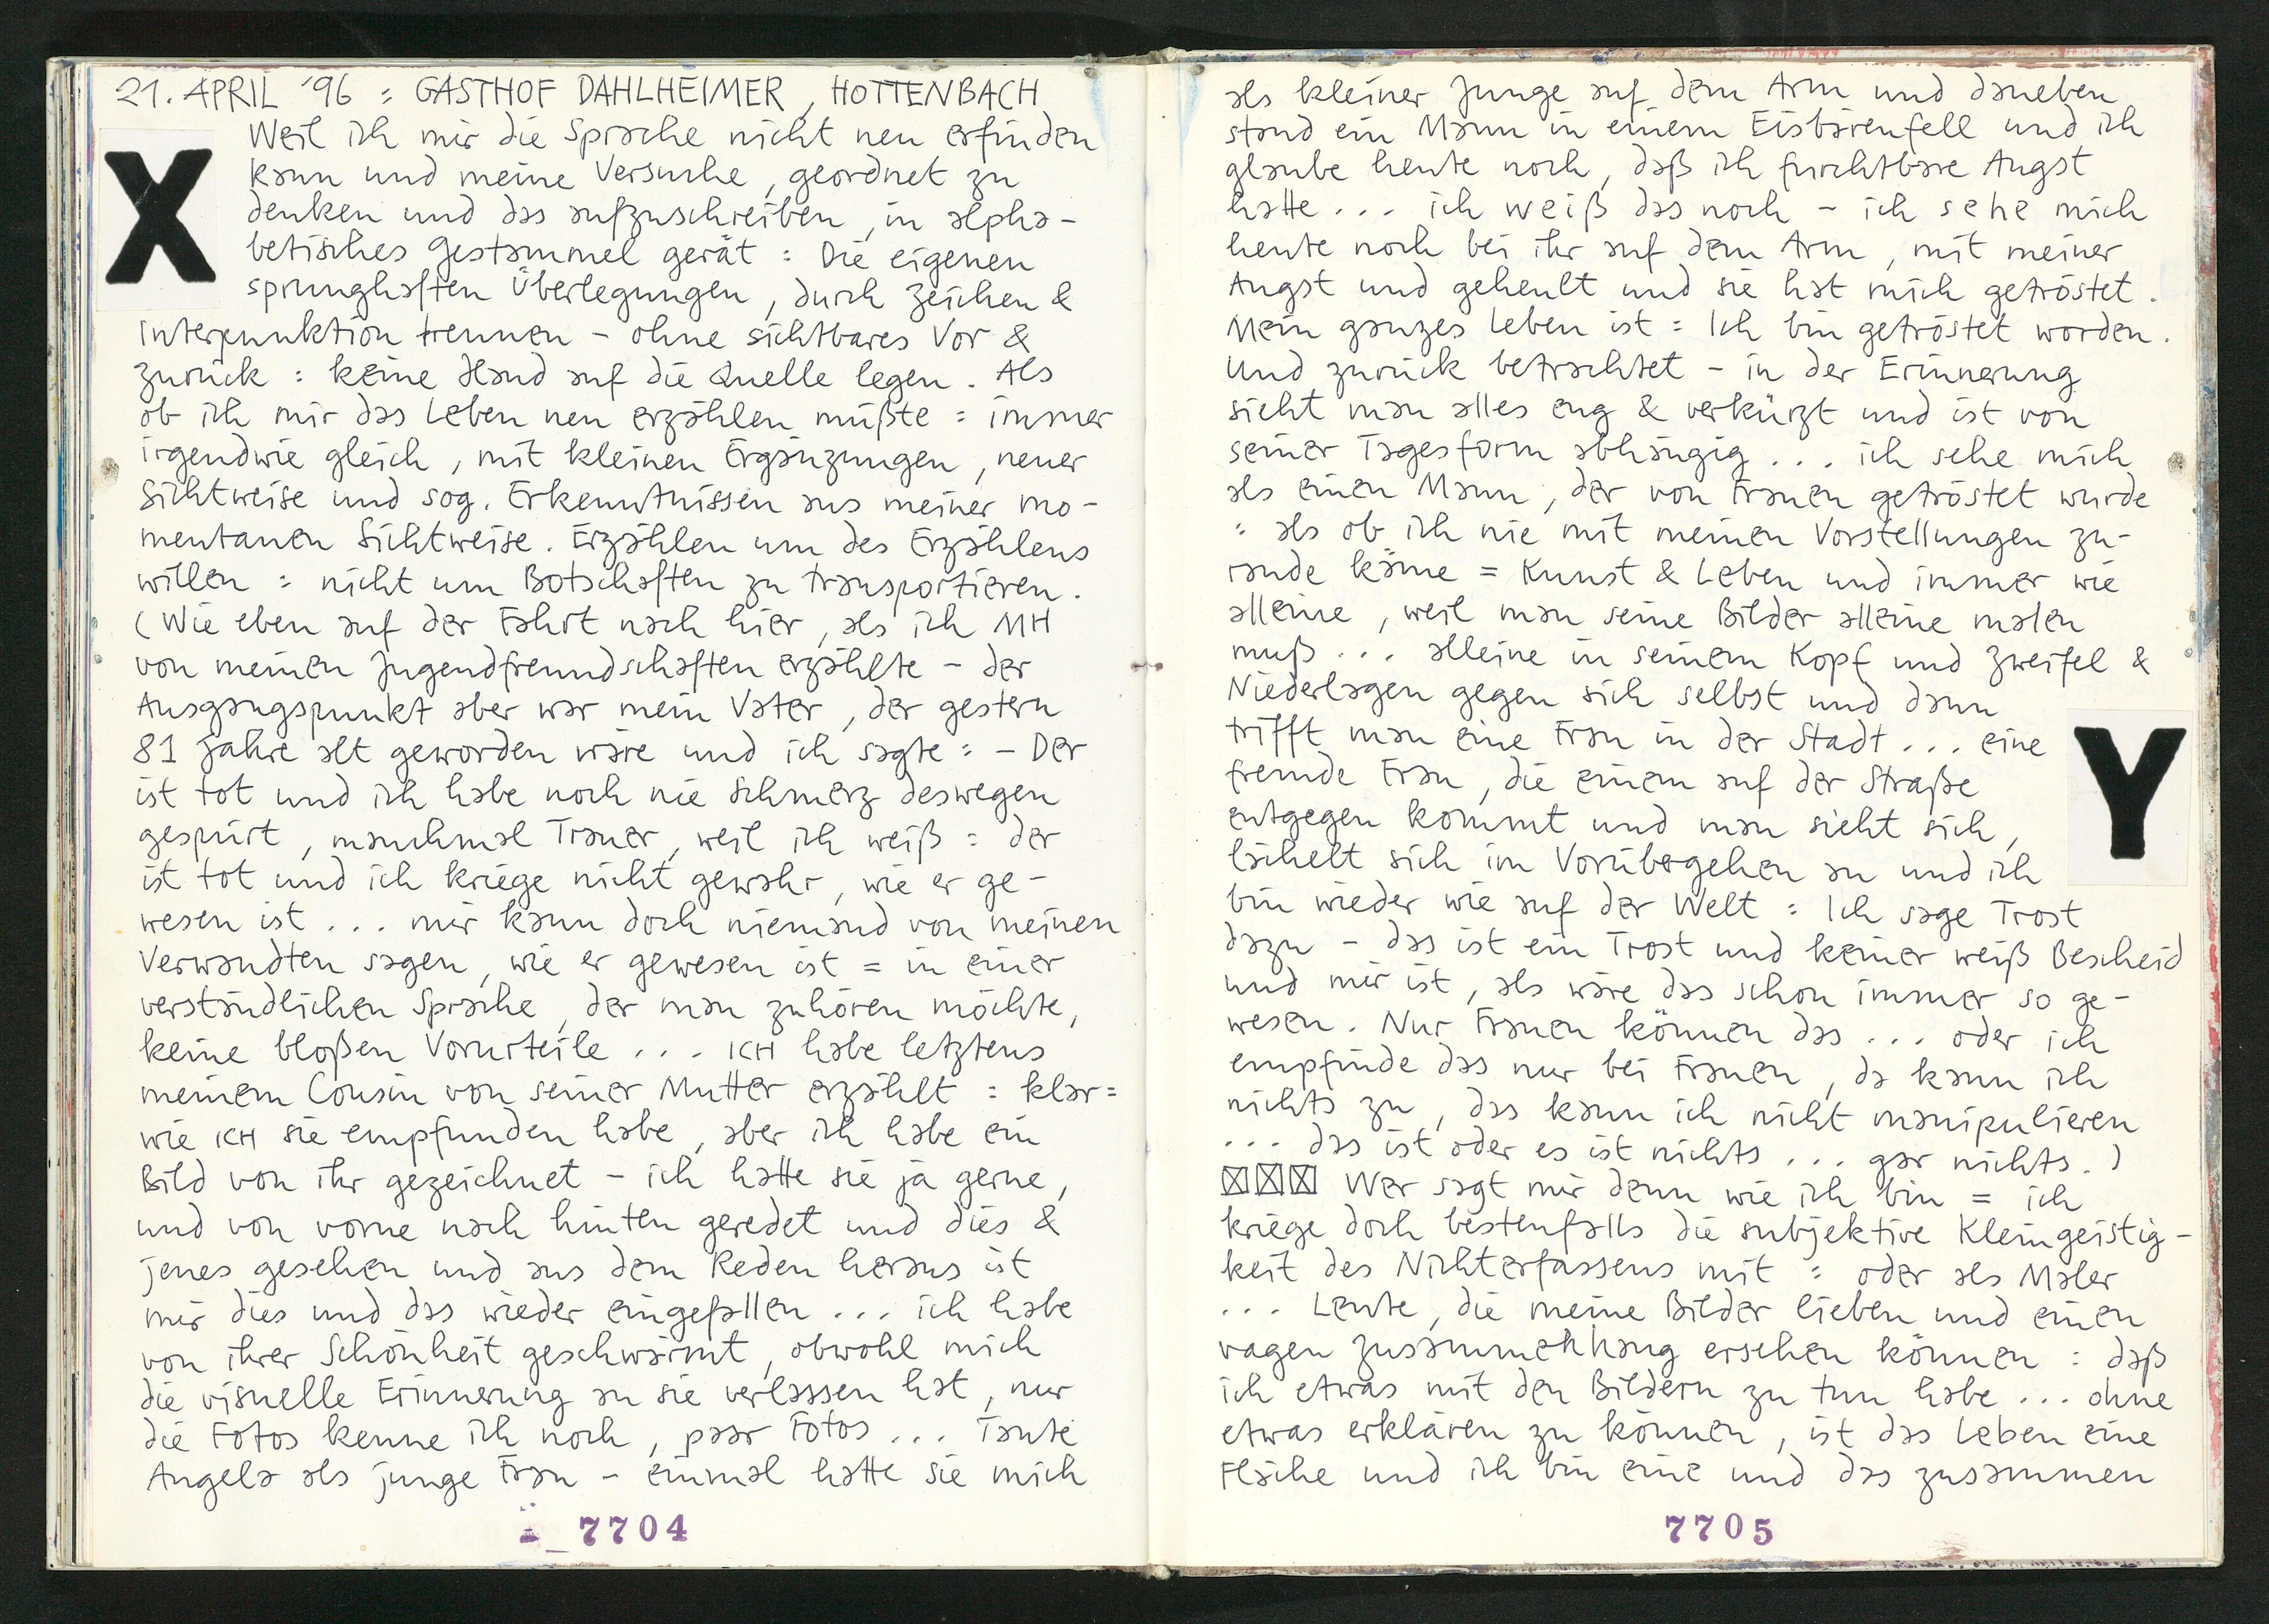 21. APRIL '96 : GASTHOF DAHLHEIMER, HOTTENBACH
X
Weil ich mir die Sprache nicht neu erfinden
kann und meine Versuche, geordnet zu
denken und das aufzuschreiben, in alpha-
betisches Gestammel gerät : Die eigenen
sprunghaften Überlegungen, durch Zeichen &
Interpunktion trennen - ohne sichtbares Vor &
zurück : keine Hand auf die Quelle legen. Als
ob ich mir das Leben neu erzählen müßte : immer
irgendwie gleich, mit kleinen Ergänzungen, neuer
Sichtweise und sog. Erkenntnissen aus meiner mo-
mentanen Sichtweise. Erzählen um des Erzählens
willen : nicht um Botschaften zu transportieren.
(Wie eben auf der Fahrt nach hier, als ich MH
von meinen Jugendfreundschaften erzählte - der
Ausgangspunkt aber war mein Vater, der gestern
81 Jahre alt geworden wäre und ich sagte : - Der
ist tot und ich habe noch nie Schmerz deswegen
gespürt, manchmal Trauer, weil ich weiß : der
ist tot und ich kriege nicht gewahr, wie er ge-
wesen ist ... mir kann doch niemand von meinen
Verwandten sagen, wie er gewesen ist = in einer
verständlichen Sprache, der man zuhören möchte,
keine bloßen Vorurteile ... ICH habe letztens
meinem Cousin von seiner Mutter erzählt : klar =
wie ICH sie empfunden habe, aber ich habe ein
Bild von ihr gezeichnet - ich hatte sie ja gerne,
und von vorne nach hinten geredet und dies &
jenes gesehen und aus dem Reden heraus ist
mir dies und das wieder eingefallen ... ich habe
von ihrer Schönheit geschwärmt, obwohl mich
die visuelle Erinnerung an sie verlassen hat, nur
die Fotos kenne ich noch, paar Fotos ... Tante
Angela als junge Frau - einmal hatte sie mich
7704
als kleiner Junge auf dem Arm und daneben
stand ein Mann in einem Eisbärenfell und ich
glaube heute noch, daß ich furchtbare Angst
hatte ... ich weiß das noch - ich sehe mich
heute noch bei ihr auf dem Arm, mit meiner
Angst und geheult und sie hat mich getröstet.
Mein ganzes Leben ist : Ich bin getröstet worden.
Und zurück betrachtet - in der Erinnerung
sieht man alles eng & verkürzt und ist von
seiner Tagesform abhängig ... ich sehe mich
als einen Mann, der von Frauen getröstet wurde
: als ob ich nie mit meinen Vorstellungen zu-
rande käme = Kunst & Leben und immer wie
alleine, weil man seine Bilder alleine malen
muß ... alleine in seinem Kopf und Zweifel &
Niederlagen gegen sich selbst und dann
trifft man eine Frau in der Stadt ... eine
fremde Frau, die einem auf der Straße
entgegen kommt und man sieht sich,
lächelt sich im Vorübergehen an und ich
Y
bin wieder wie auf der Welt : Ich sage Trost
dazu - das ist ein Trost und keiner weiß Bescheid
und mir ist, als wäre das schon immer so ge-
wesen. Nur Frauen können das ... oder ich
empfinde das nur bei Frauen, da kann ich
nichts zu, das kann ich nicht manipulieren
... das ist oder es ist nichts ... gar nichts.)
☒☒☒ Wer sagt mir denn wie ich bin = ich
kriege doch bestenfalls die subjektive Kleingeistig-
keit des Nichterfassens mit : oder als Maler
... Leute, die meine Bilder lieben und einen
vagen Zusammenhang ersehen können : daß
ich etwas mit den Bildern zu tun habe ... ohne
etwas erklären zu können, ist das Leben eine
Fläche und ich bin eine und das zusammen
7705